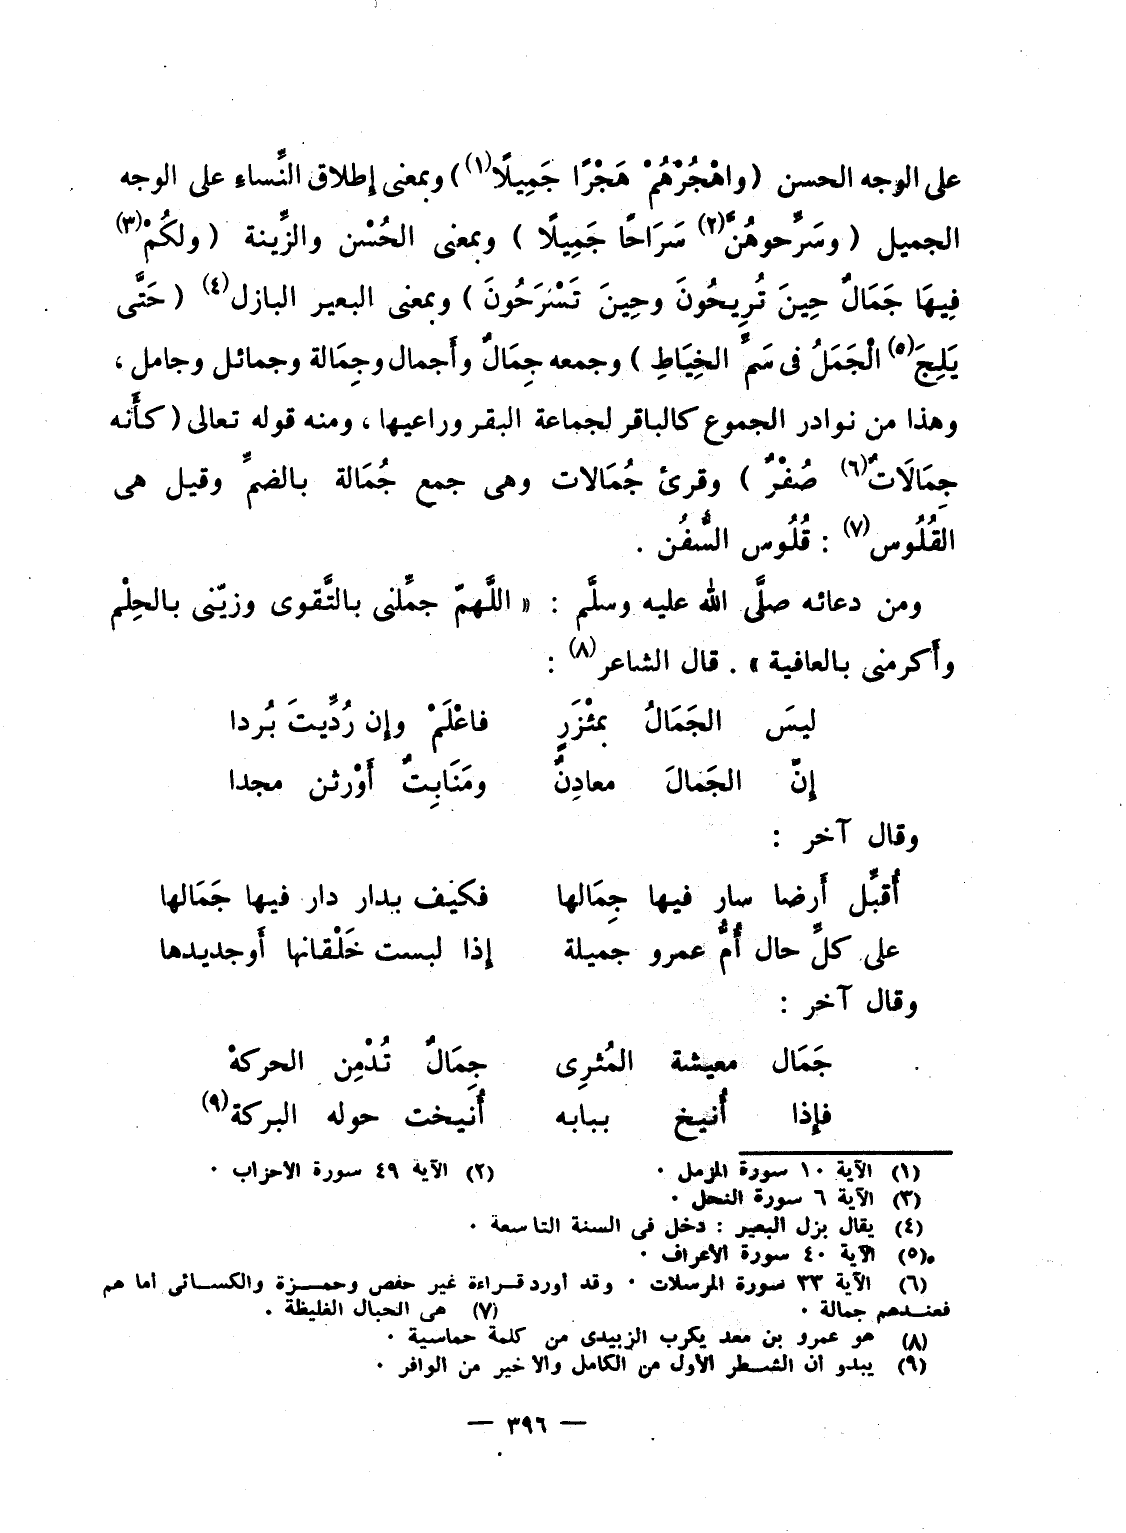 على الوجه الحسن (واهْجُرْهُمْ هَجْرًا جَمِيلًا(١)) وبمعنى إطلاق النِّساءِ على الوجه
الجميل (وسَرِّحوهُنَّ(٢) سَرَاحًا جَمِيلًا) وبمعنى الحُسْن والزِّينة (ولكُمْ(٣)
فِيهَا جَمَالٌ حِينَ تُرِيحُونَ وحِينَ تَسْرَحُونَ) وبمعنى البعير البازل(٤) (حَتَّى
يَلِجَ(٥) الْجَمَلُ فى سَمِّ الخِيَاطِ) وجمعه جِمَالٌ وأَجمال وجِمَالة وجمائل وجامل ،
وهذا من نوادر الجموع كالباقر لجماعة البقر وراعيها ، ومنه قوله تعالى (كأَنه
جِمَالَاتٌ(٦) صُفْرٌ) وقرئ جُمَالات وهى جمع جُمَالة بالضمِّ وقيل هى
القُلُوس(٧) : قُلُوس السُّفُن .
ومن دعائه صلَّى الله عليه وسلَّم : « اللَّهمّ جمِّلنى بالتَّقوى وزيّنى بالحِلْم
وأَكرمنى بالعافية » . قال الشاعر(٨) :
ليسَ الجَمَالُ بمئْزَرٍ فاعْلَمْ وإن رُدِّيتَ بُردا
إنَّ الجَمالَ معادِنٌ ومَنَابِتٌ أَوْرثن مجدا
وقال آخر :
أُقبِّل أَرضا سار فيها جِمَالها فكيف بدار دار فيها جَمَالها
على كلِّ حال أُمُّ عمرو جميلة إذا لبست خَلْقانها أَوجديدها
وقال آخر :
جَمَال معيشة المُثرِى جِمَالٌ تُدْمِن الحركةْ
فإذا أُنيخ ببابه أُنيخت حوله البركة(٩)
(١) الآية ١٠ سورة المزمل . (٢) الآية ٤٩ سورة الأحزاب .
(٣) الآية ٦ سورة النحل .
(٤) يقال بزل البعير : دخل فى السنة التاسعة .
(٥) الآية ٤٠ سورة الأعراف .
(٦) الآية ٣٣ سورة المرسلات . وقد أورد قراءة غير حفص وحمزة والكسائى أما هم
فعندهم جمالة . (٧) هى الحبال الغليظة .
(٨) هو عمرو بن معد يكرب الزبيدى من كلمة حماسية .
(٩) يبدو أن الشطر الأول من الكامل والأخير من الوافر .
— ٣٩٦ —